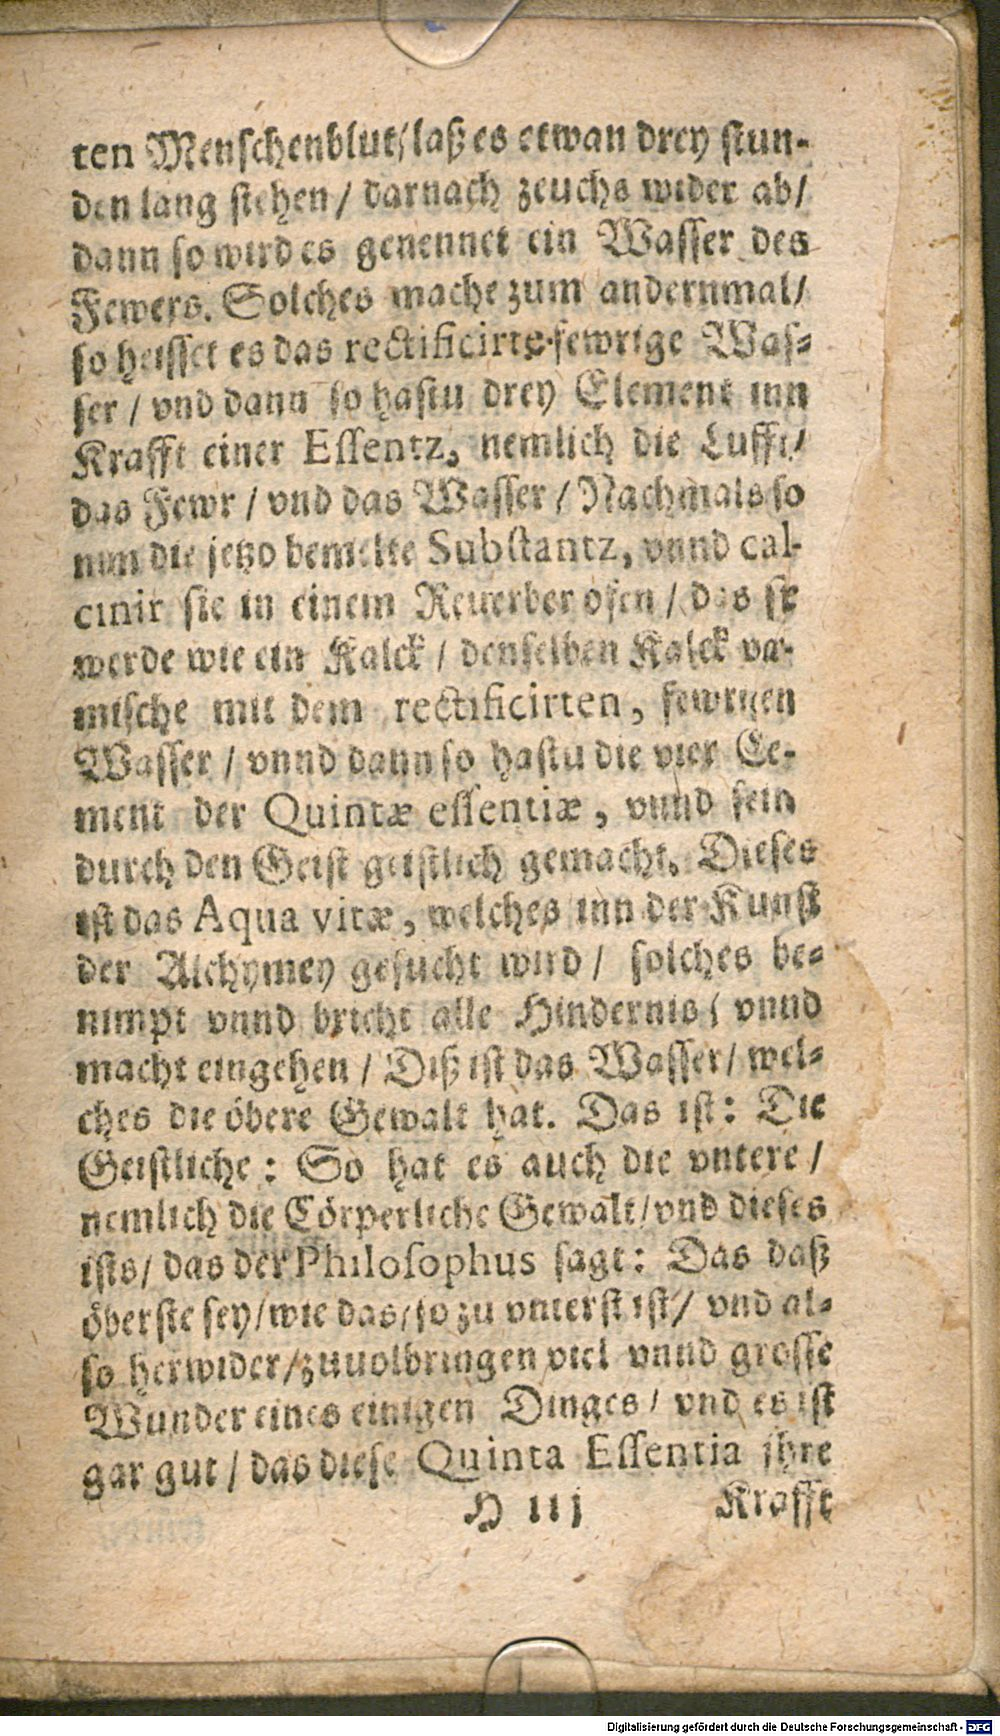 ten Menschenblut/ laß es etwan drey stun-
den lang stehen / darnach zeuchs wider ab/
dann so wird es genennet ein Wasser des
Fewers. Solches mache zum andernmal/
so heisset es das rectificirte fewrige Was-
ser / vnd dann so hastu drey Element inn
Krafft einer Essentz, nemlich die Lufft/
das Fewr / vnd das Wasser / Nachmals so
nim die jetzo bemelte Substantz, vnnd cal-
cinir sie in einem Reuerber ofen / das sie
werde wie ein Kalck / denselben Kalck ver-
mische mit dem rectificirten, fewrigen
Wasser / vnnd dann so hastu die vier Ele-
ment der Quintæ essentiæ, vnnd sein
durch den Geist geistlich gemacht. Dieses
ist das Aqua vitæ, welches inn der Kunst
der Alchymey gesucht wird / solches be-
nimpt vnnd bricht alle Hindernis/ vnnd
macht eingehen / Diß ist das Wasser/ wel-
ches die öbere Gewalt hat. Das ist: Die
Geistliche: So hat es auch die vntere /
nemlich die Cörperliche Gewalt/ vnd dieses
ists/ das der Philosophus sagt: Das daß
öberste sey/ wie das/ so zu vnterst ist/ vnd al-
so herwider/ zuuolbringen viel vnnd grosse
Wunder eines einigen Dinges / vnd es ist
gar gut / das diese Quinta Essentia jhre
H iij Krafft
Digitalisierung gefördert durch die Deutsche Forschungsgemeinschaft - DFG